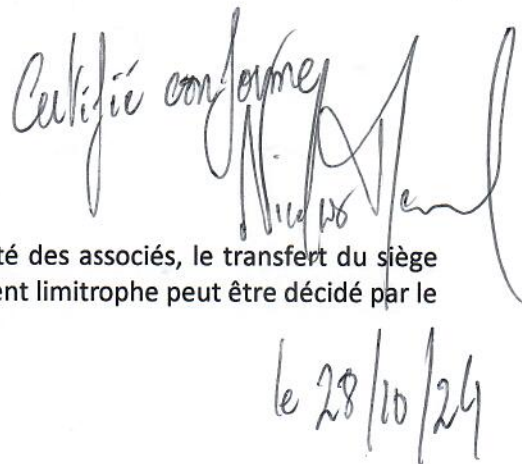 Certifié conforme
Nicolas
té des associés, le transfert du siège
ent limitrophe peut être décidé par le
le 28/10/24